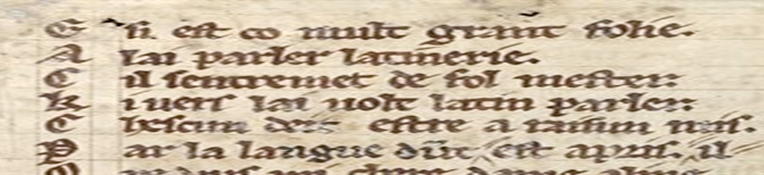 E si est co mult grant folie.
A lai parler latinerie.
C il sentremet de fol mester:
K i uers lai uolt latin parler:
C hescun deit estre a raisun mis.
P ar la langue dunt est apris. il